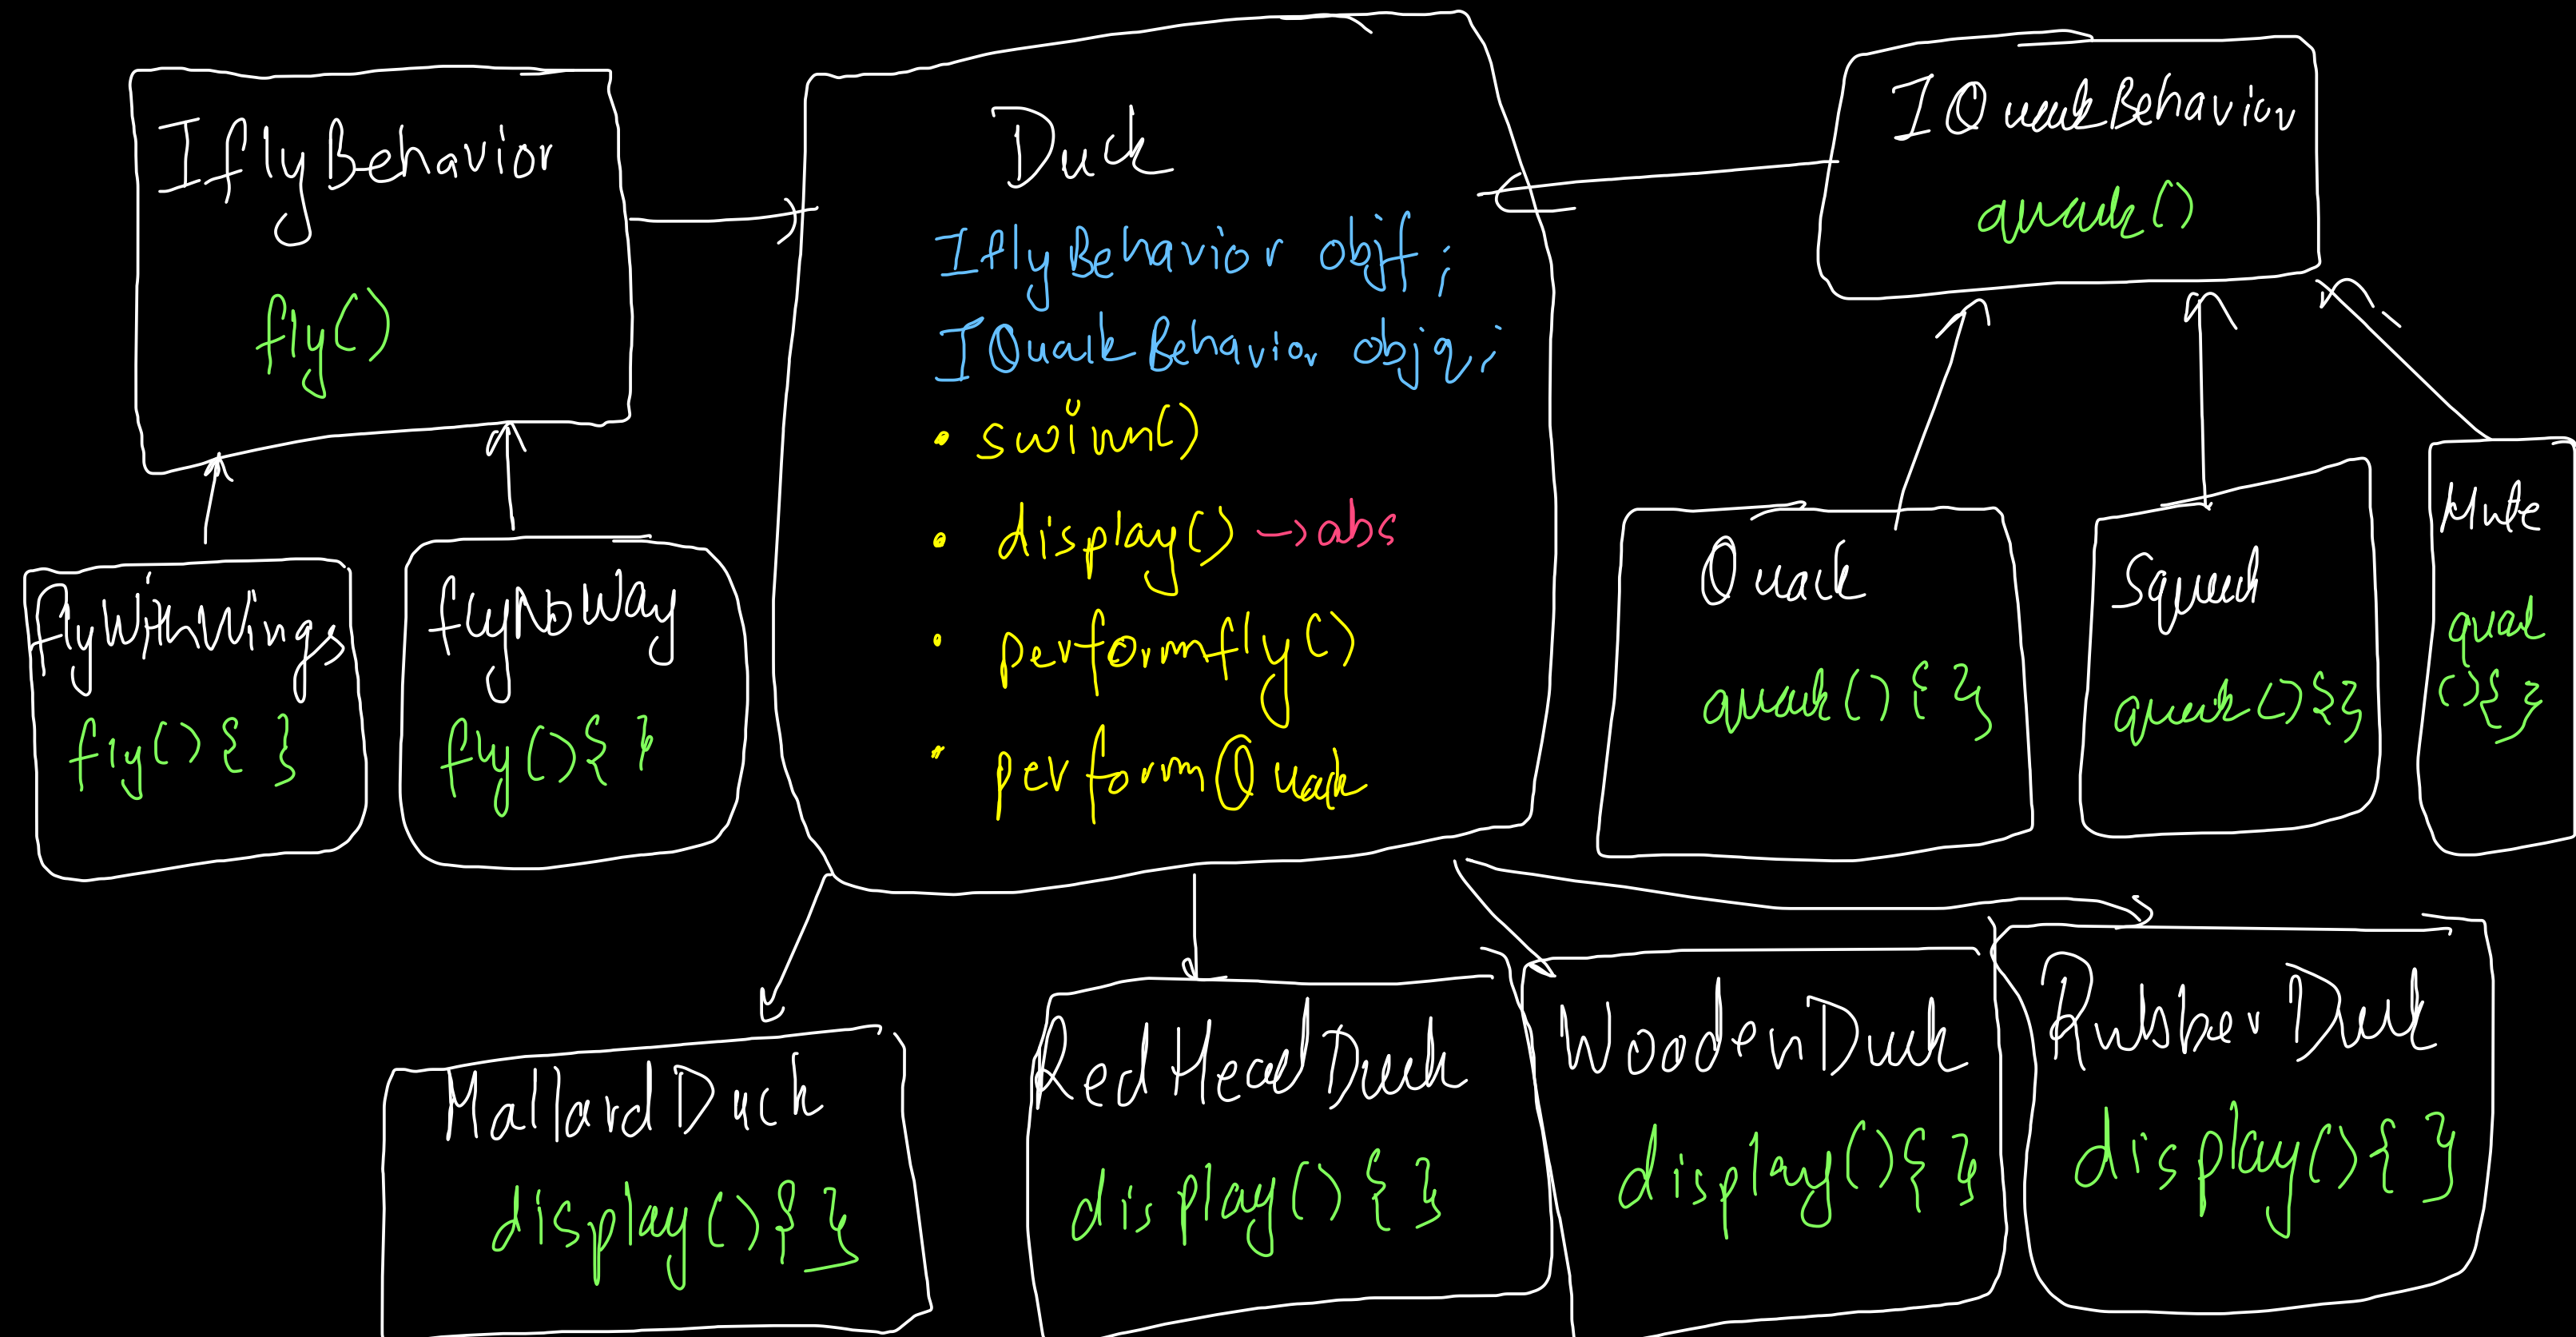 IflyBehavior
fly()
flyWithWings
fly(){ }
flyNoWay
fly(){ }
Duck
IflyBehavior objf;
IQuackBehavior objq;
• swim()
• display() → abs
• performfly()
• performQuack
IQuackBehavior
quack()
Quack
quack(){ }
quack(){}
Mute
(){}
MallardDuck
display(){ }
RedHeadDuck
display(){ }
WoodenDuck
display(){ }
RubberDuck
display(){ }